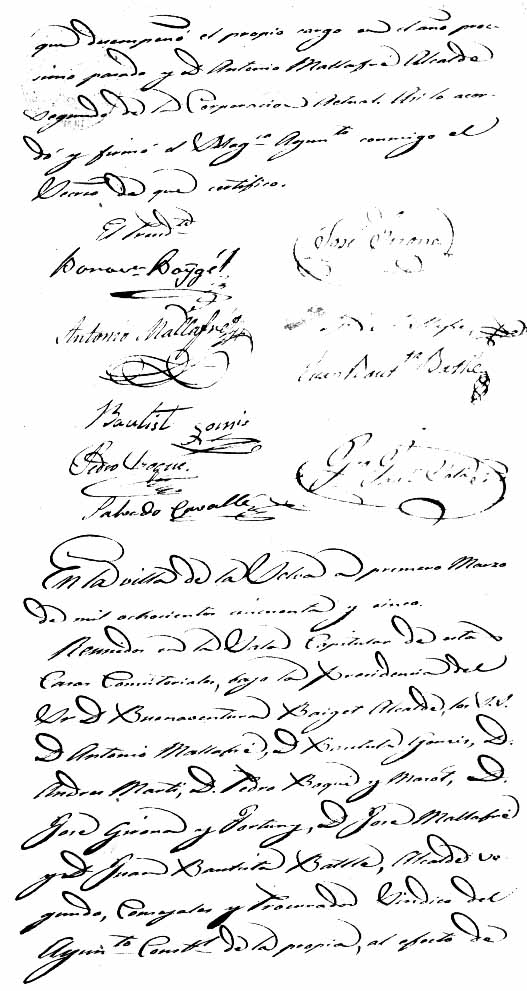 que desempeñó el propio cargo en el año proc-
simo pasado y D. Antonio Mallafré Alcalde
segundo de la Corporacion Actual. Asi lo acor-
dó y firmó el Magco Ayunto conmigo el
Secrio de que certifico.
El Presidte
Bonavra Baygét José Girona
Antonio Mallafré
Juan Bauta Batlle
Bautista Gomis
Pedro Roque.
Salvado Cavallé
En la villa de la Selva a primero Marzo
de mil ochocientos cincuenta y cinco.
Reunidos en la Sala Capitular de estas
Casas Consistoriales, bajo la Presidencia del
Sr. D. Buenaventura Baiget Alcalde, los S.S.
D. Antonio Mallafré, D. Bautista Gomis, D.
Andres Marti, D. Pedro Roqué y Masot, D.
José Girona y Fortuny, D. José Mallafré
y D. Juan Bautista Batlle, Alcalde se-
gundo, Concejales y Procurador Sindico del
Ayunto Constl de la propia, al efecto de